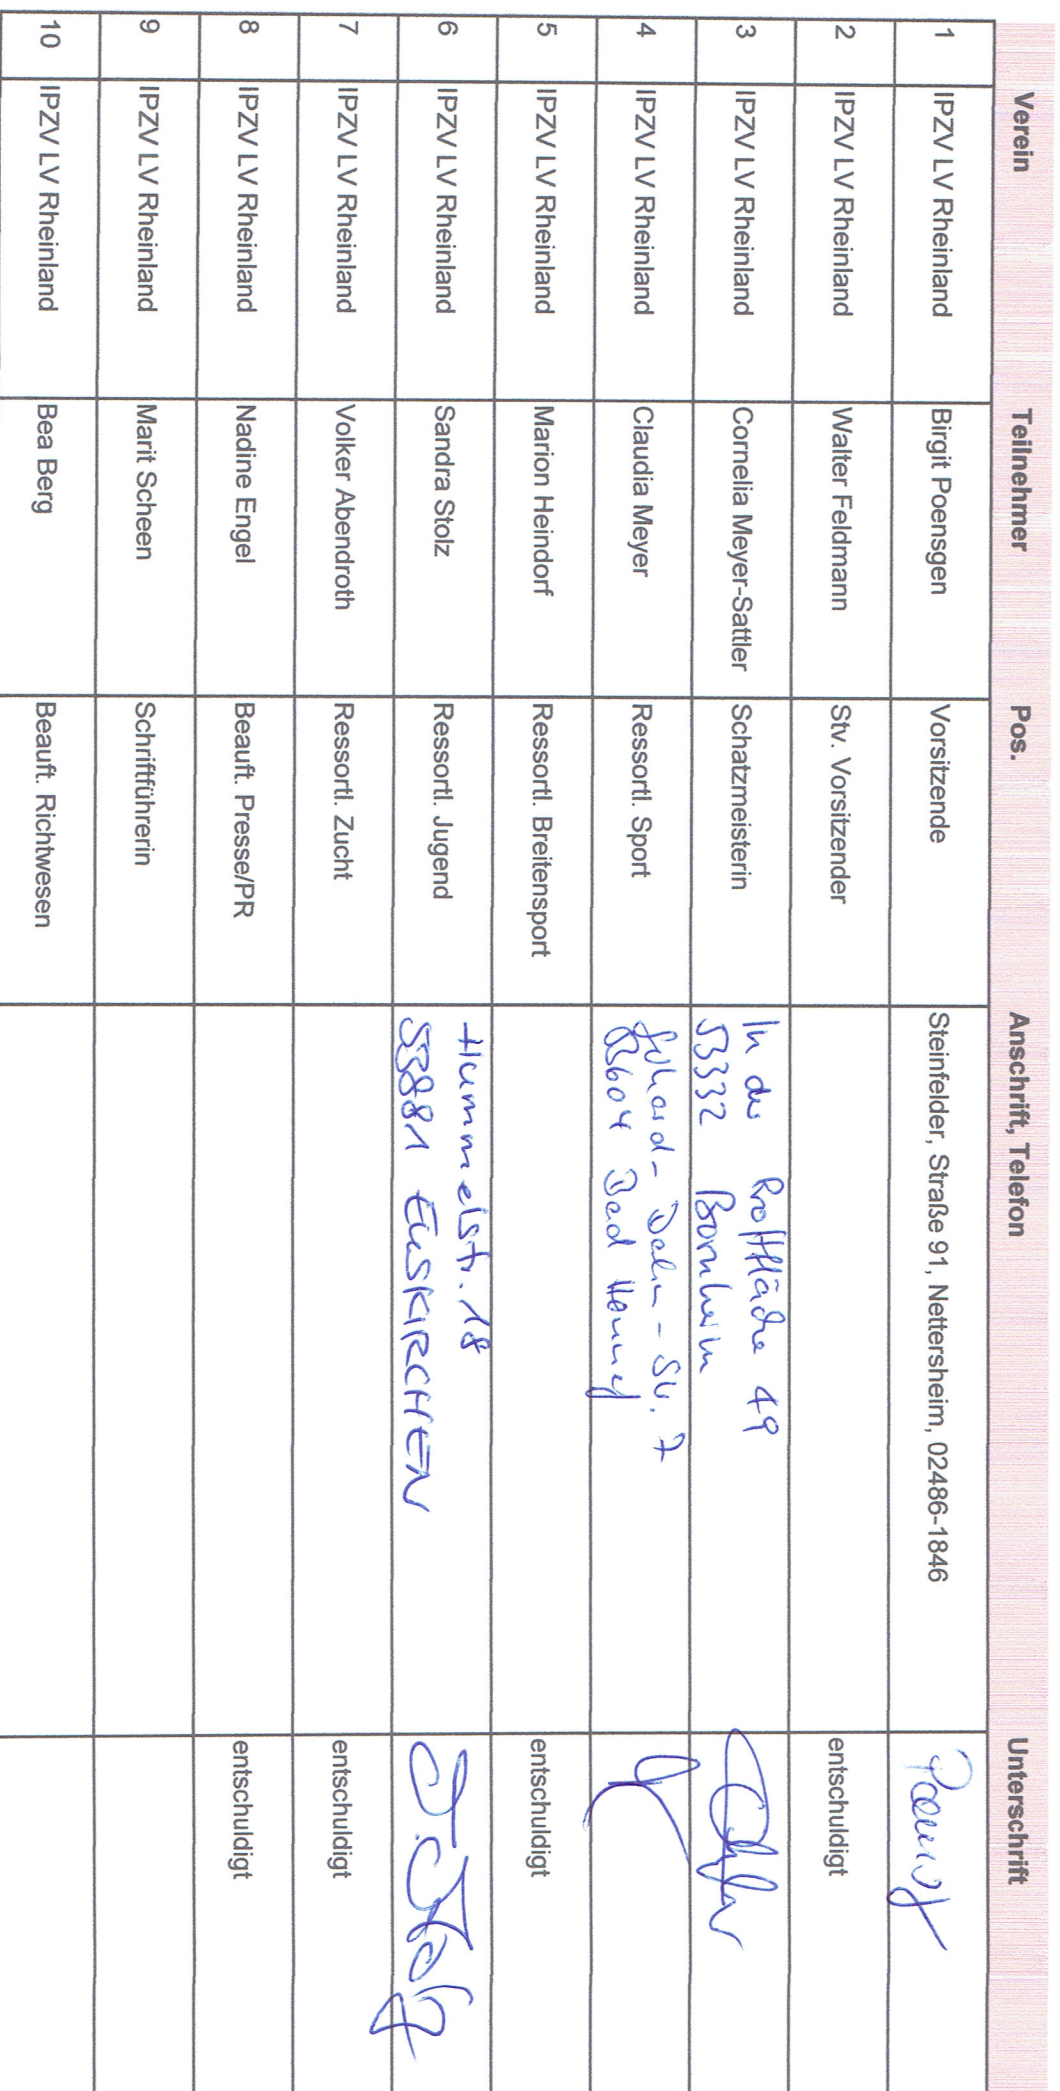 Verein Teilnehmer Pos. Anschrift, Telefon Unterschrift
1 IPZV LV Rheinland Birgit Poensgen Vorsitzende Steinfelder, Straße 91, Nettersheim, 02486-1846
2 IPZV LV Rheinland Walter Feldmann Stv. Vorsitzender entschuldigt
3 IPZV LV Rheinland Cornelia Meyer-Sattler Schatzmeisterin In der 49
53332 Bornheim
4 IPZV LV Rheinland Claudia Meyer Ressortl. Sport 7
53604 Bad Honnef
5 IPZV LV Rheinland Marion Heindorf Ressortl. Breitensport entschuldigt
6 IPZV LV Rheinland Sandra Stolz Ressortl. Jugend Hummelstr. 18 S. Stolz
53881 EUSKIRCHEN
7 IPZV LV Rheinland Volker Abendroth Ressortl. Zucht entschuldigt
8 IPZV LV Rheinland Nadine Engel Beauft. Presse/PR entschuldigt
9 IPZV LV Rheinland Marit Scheen Schriftführerin
10 IPZV LV Rheinland Bea Berg Beauft. Richtwesen